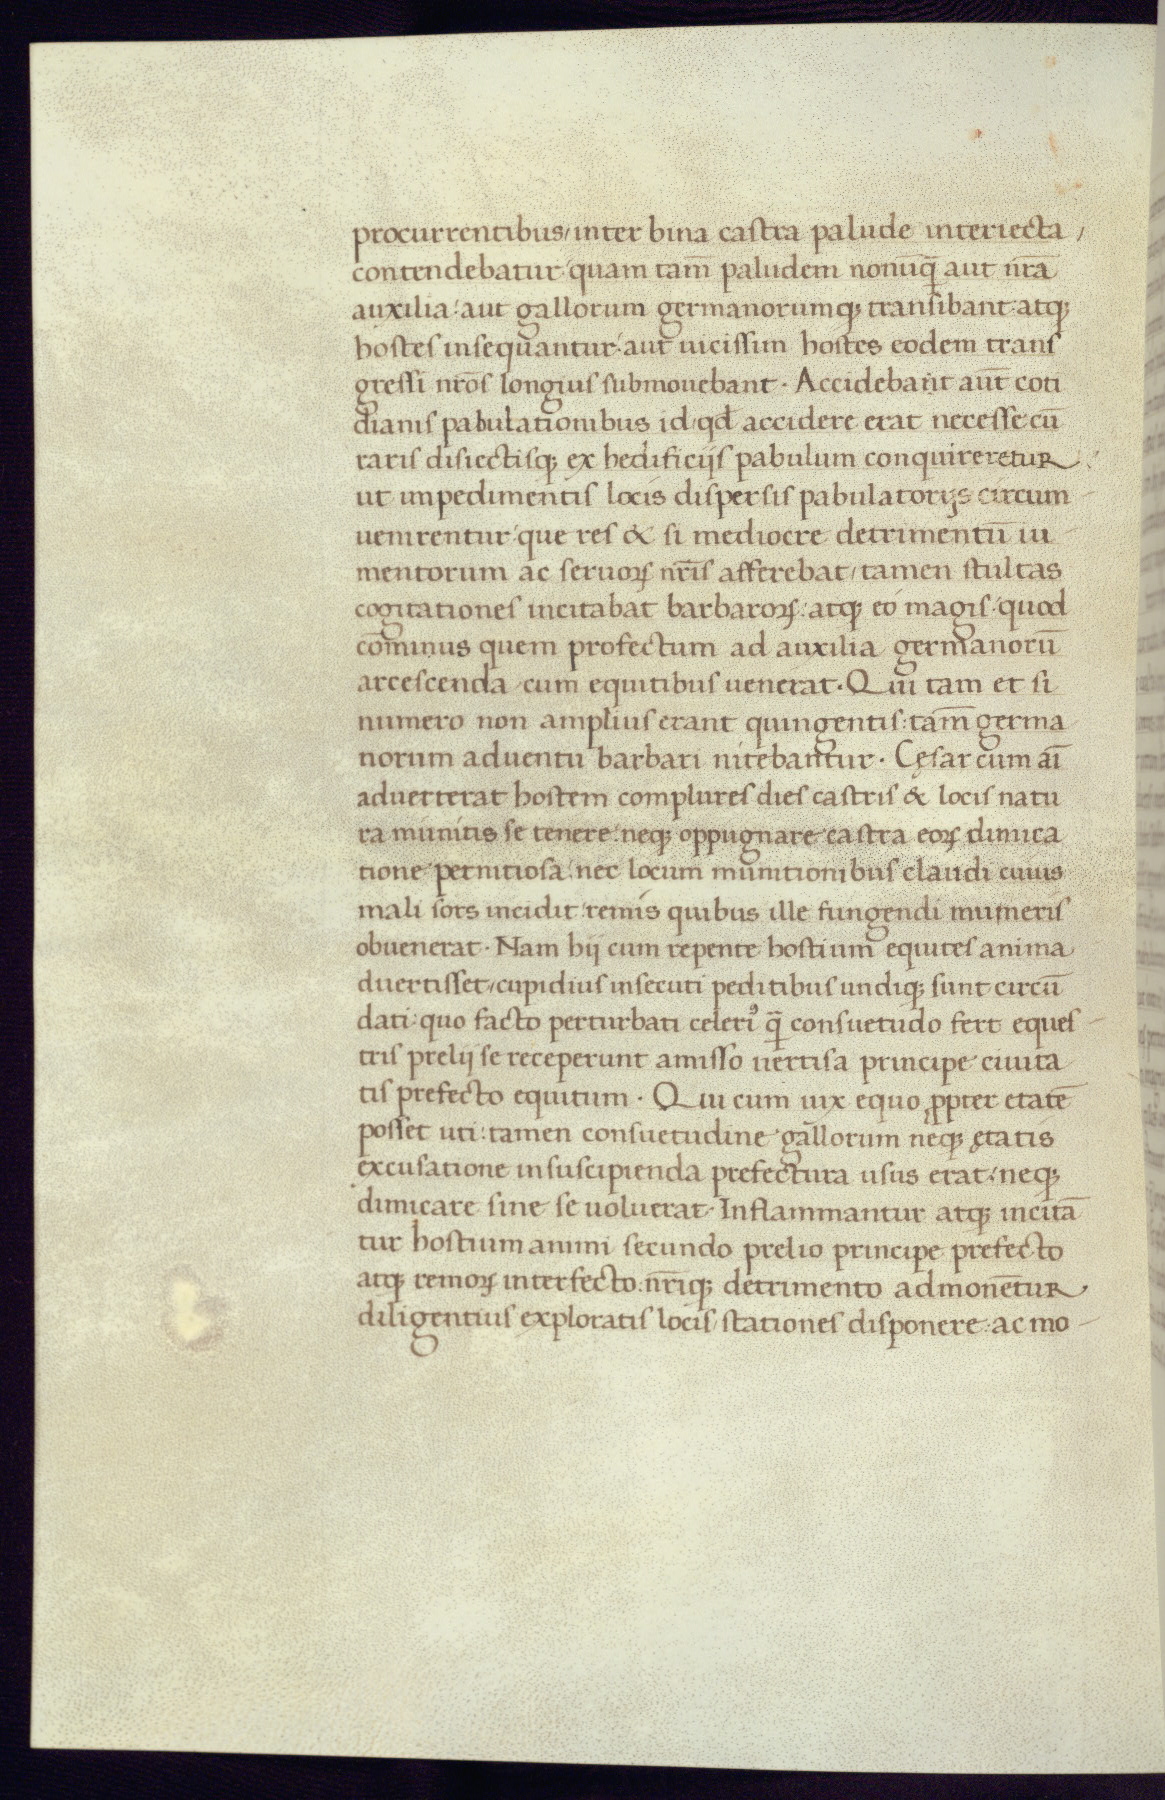 procurrentibus/inter bina castra palude interiecta/
contendebatur quam tam̄ paludem nonūq̄ aut nr̄a
auxilia: aut gallorum germanorumq; transibant: atq;
hostes insequantur: aut uicissim hostes eodem trans
gressi nr̄os longius submouebant. Accidebant aūt coti
dianis pabulationibus id qd̄ accidere erat necesse cū
raris disiectisq; ex hedificijs pabulum conquireretur.
ut impedimentis locis dispersis pabulatorijs circum
uenirentur que res & si mediocre detrimentū iu
mentorum ac seruoꝝ nr̄is afferebat/tamen stultas
cogitationes incitabat barbaroꝝ: atq; eo magis quod
cōminus quem profectum ad auxilia germanorū
arcescenda cum equitibus uenerat. Qui tam et si
numero non amplius erant quingentis: tam̄ germa
norum aduentu barbari nitebantur. Cęsar cum aī
aduerterat hostem complures dies castris & locis natu
ra munitis se tenere: neq; oppugnare castra eoꝝ dimica
tione pernitiosa: nec locum munitionibus claudi cuius
mali sors incidit remis quibus ille fungendi muneris
obuenerat. Nam hij cum repente hostium equites anima
duertisset/cupidius insecuti peditibus undiq; sunt circū
dati: quo facto perturbati celeriꝰ q̄ consuetudo fert eques
tris prelij se receperunt amisso uertisa principe ciuita
tis prefecto equitum. Qui cum uix equo ꝓpter etatē
posset uti: tamen consuetudine gallorum neq; ętatis
excusatione in suscipienda prefectura usus erat: neq;
dimicare sine se uoluerat. Inflammantur atq; incitā
tur hostium animi secundo prelio principe prefecto
atq; remoꝝ interfecto. nr̄iq; detrimento admonētur
diligentius exploratis locis/stationes disponere: ac mo